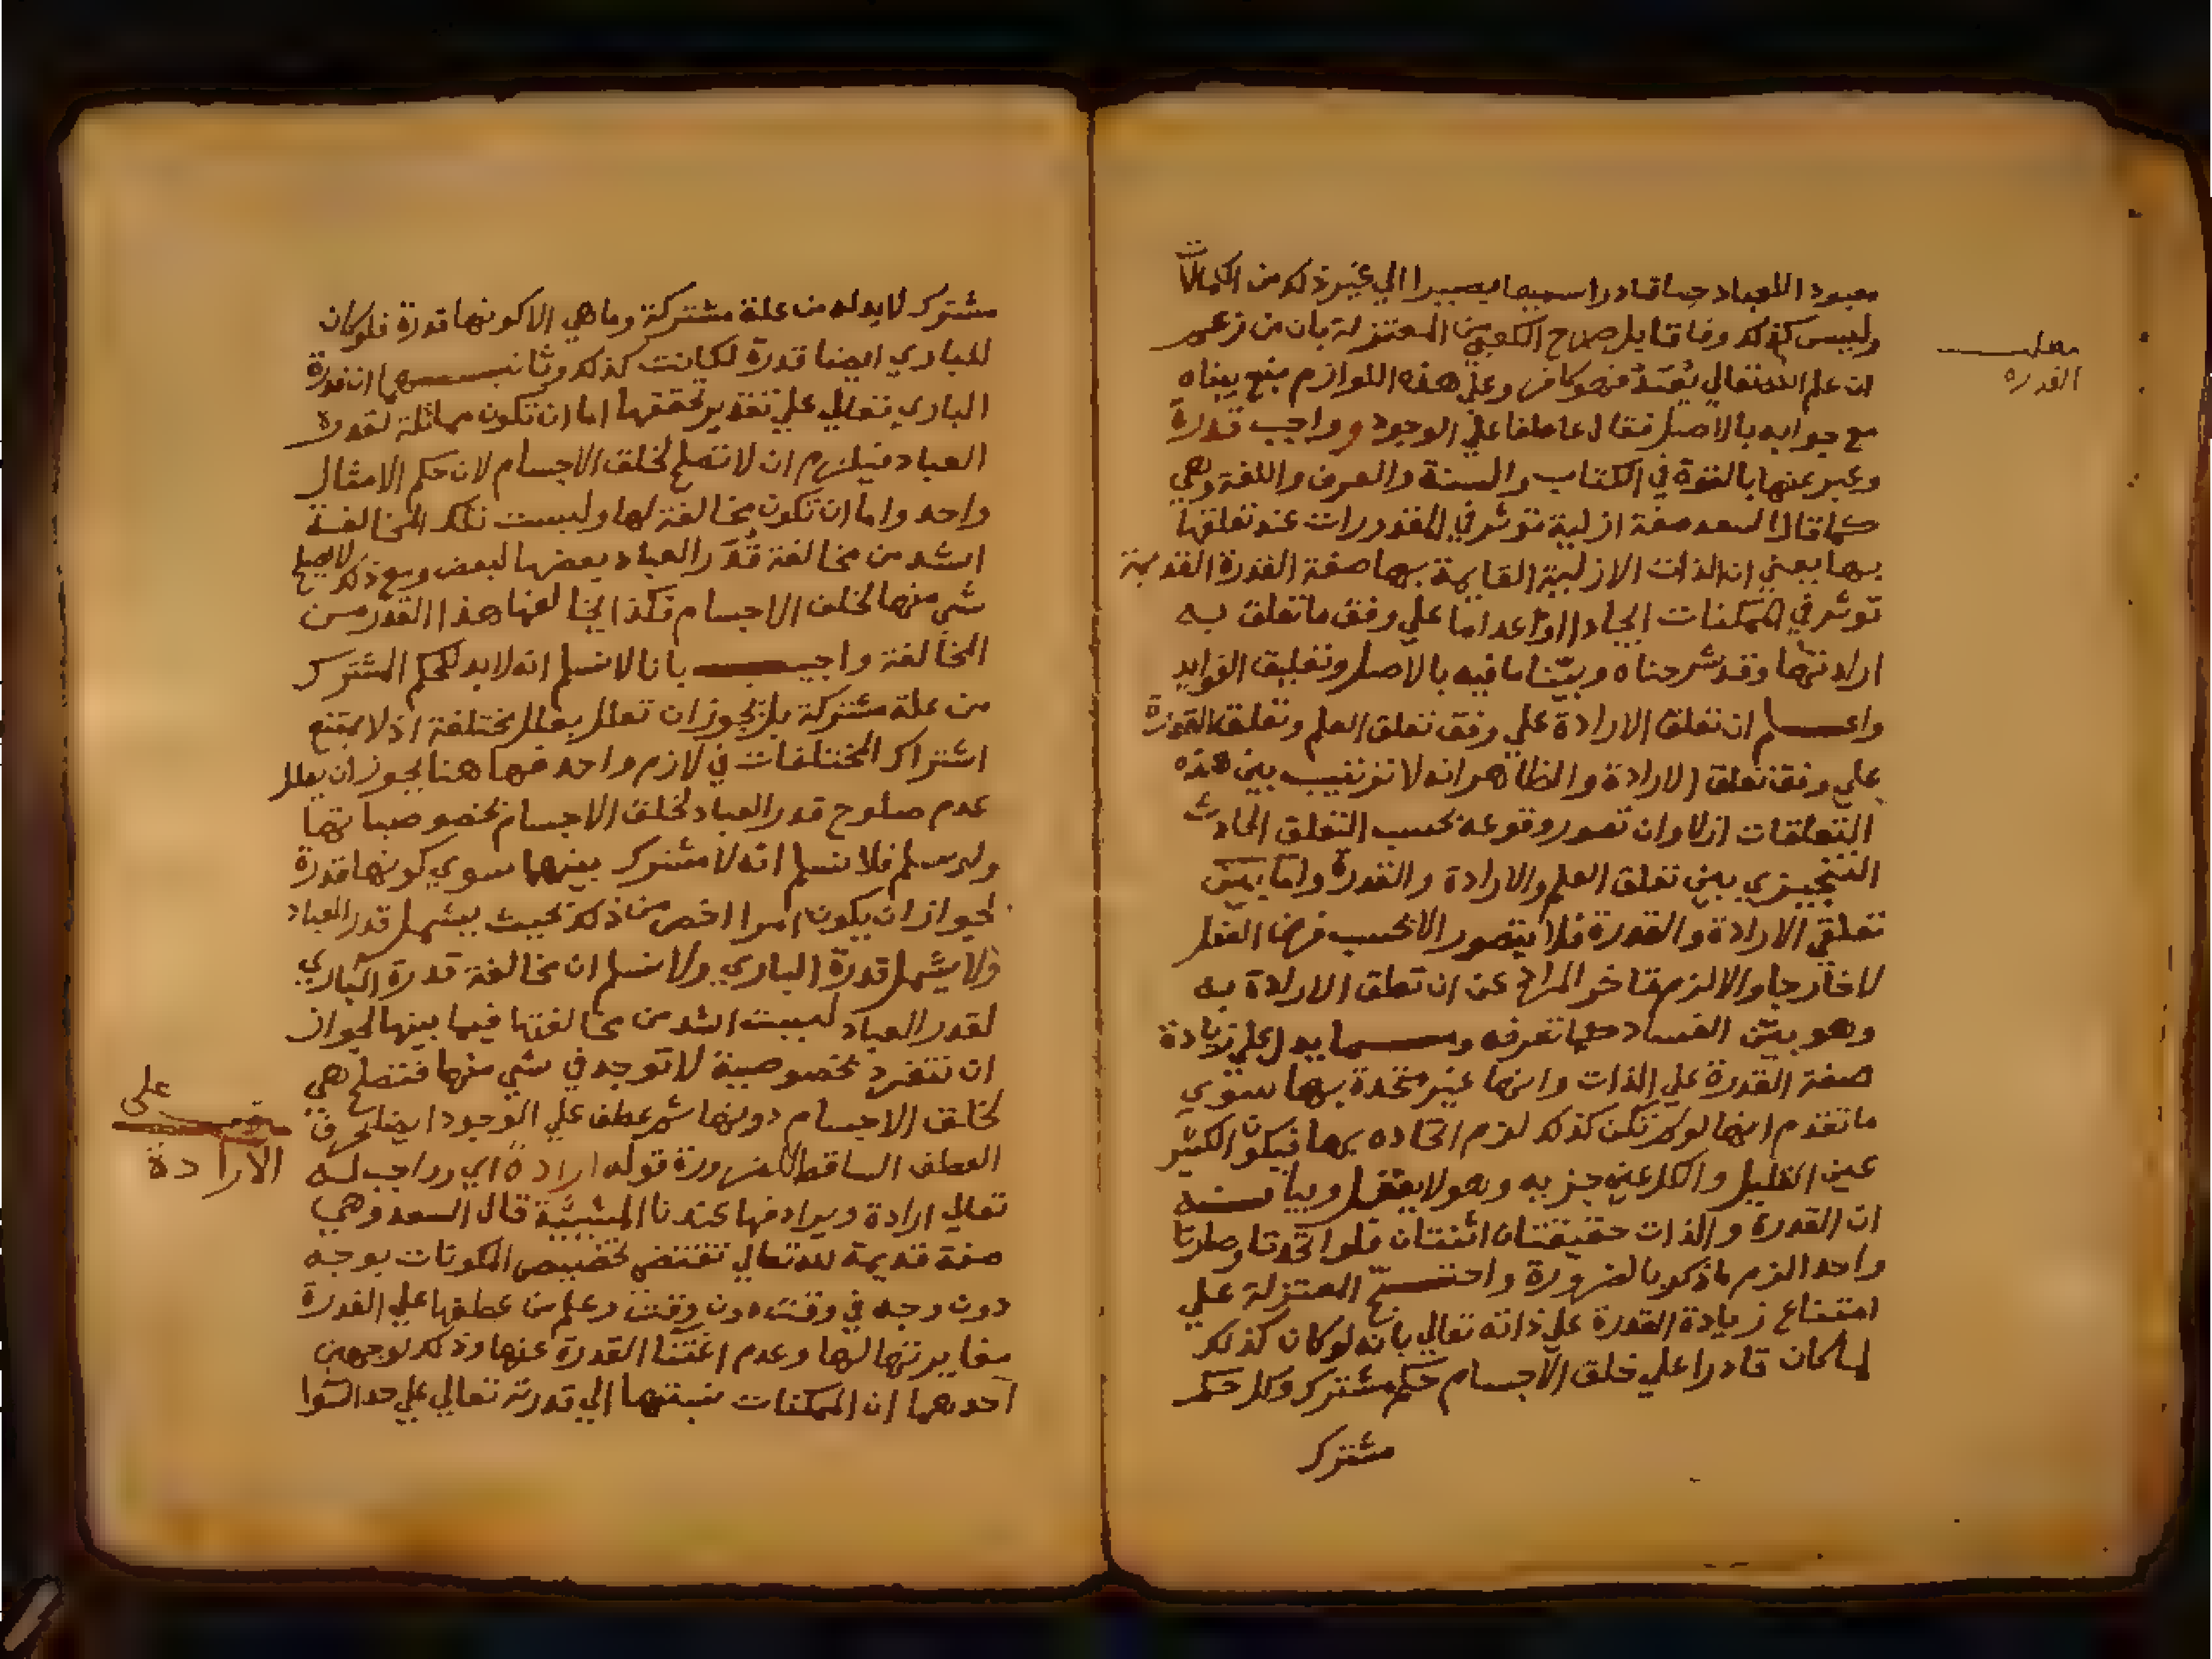 معبودا للعباد حيا قادرا سميعا بصيرا الي غير ذلك من الكمالات
وليس كذلك وفاقا بل صرح الكعبي من المعتزلة بان من زعم
ان علم الله تعالي يعبد فهو كافر وعلي هذه اللوازم منع بيناه
مع جوابه بالاصل فقال عاطفا علي الوجود وواجب قدرة
وعبر عنها بالقوة في الكتاب والسنة والعرف واللغة وهي
كما قال السعد صفة ازلية توثر في المقدورات عند تعلقها
بها يعني ان الذات الازلية القايمة بها صفة القدرة القديمة
توثر في الممكنات ايجادا او اعداما علي وفق ما تعلق به
ارادتها وقد شرحناه وبيّنا ما فيه بالاصل وتعليق الفوايد
واعلم ان تعلق الارادة علي وفق تعلق العلم وتعلق القدرة
علي وفق تعلق الارادة والظاهر انه لا ترتيب بين هذه
التعلقات ازلا وان تصور وقوعه بحسب التعلق الحادث
التنجيزي بين تعلق العلم والارادة والقدرة واما بين
تعلقي الارادة والقدرة فلا يتصور الا بحسب فرض العقل
لا خارجا والا لزم تاخر المراد عن ان تعلق الارادة به
وهو بيّن الفساد كما تعرفه ومما يدل علي زيادة
صفة القدرة علي الذات وانها غير متحدة بها سوي
ما تقدم انها لو لم تكن كذلك لزم اتحاده بها فيكون الكثير
عين القليل والكل عين جزيه وهو لا يعقل وبيانه
ان القدرة والذات حقيقتان اثنتان فلو اتحدتا وصارتا
واحدا لزم ما ذكر بالضرورة واحتج المعتزلة علي
امتناع زيادة القدرة علي ذاته تعالي بانه لو كان كذلك
لما كان قادرا علي خلق الاجسام حكم مشترك وكل حكم
مشترك
مطلب
القدره
مشترك لابد له من علة مشتركة وما هي الا كونها قدرة فلو كان
للباري ايضا قدرة لكانت كذلك وثانيها ان قدرة
الباري تعالي علي تقدير تحققها اما ان تكون مماثلة لقدرة
العباد فيلزم ان لا تصلح لخلق الاجسام لان حكم الامثال
واحد واما ان تكون مخالفة لها وليست تلك المخالفة
اشد من مخالفة قُدَر العباد بعضها لبعض ومع ذلك لا يصلح
شي منها لخلق الاجسام فكذا يخالفها هذا القدر من
المخالفة واجيب بانا لا نسلم انه لابد للحكم المشترك
من علة مشتركة بل يجوز ان تعلل بعلل مختلفة اذ لا يمتنع
اشتراك المختلفات في لازم واحد فها هنا يجوز ان يعلل
عدم صلوح قدر العباد لخلق الاجسام بخصوصياتها
ولو سلم فلا نسلم انه لا مشترك بينهما سوي كونها قدرة
لجواز ان يكون امرا اخص من ذلك بحيث يشمل قدر العباد
ولا يشمل قدرة الباري ولا نسلم ان مخالفة قدرة الباري
لقدر العباد ليست اشد من مخالفتها فيما بينها لجواز
ان تتفرد بخصوصية لا توجد في شي منها فتصلح هي
لخلق الاجسام دونها ثم عطف علي الوجود ايضا بحرف
العطف الساقط للضرورة قوله ارادة اي وواجب له
تعالي ارادة ويرادفها عندنا المشيئة قال السعد وهي
صفة قديمة لله تعالي تقتضي تخصيص المكونات بوجه
دون وجه في وقت دون وقت وعلم من عطفها علي القدرة
مغايرتها لها وعدم اغتنا القدرة عنها وذلك لوجهين
احدهما ان الممكنات نسبتها الي قدرته تعالي علي حد السوا
على
الارادة